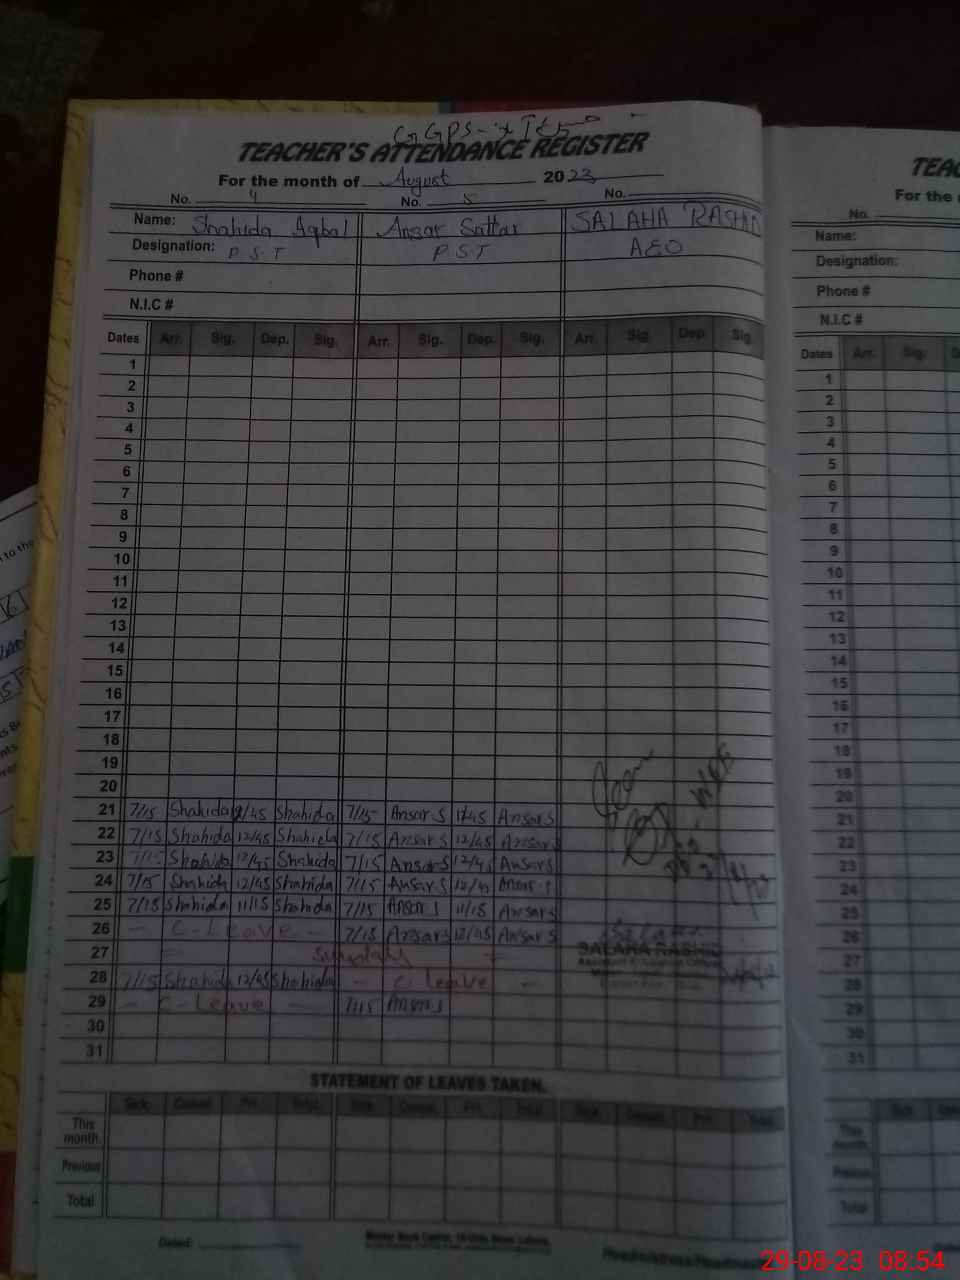 TEACHER'S ATTENDANCE REGISTER
For the month of August 2023
No. 4 No. 5 No.
Name: Shahida Iqbal Ansar Sattar SALAHA RASHID
Designation: P.S.T P.S.T AEO
Phone #
N.I.C #
Dates Arr. Sig. Dep. Sig. Arr. Sig. Dep. Sig. Arr. Sig. Dep. Sig.
1
2
3
4
5
6
7
8
9
10
11
12
13
14
15
16
17
18
19
20
21 7/15 Shahida 12/45 Shahida 7/15 Ansar S 12/45 Ansar S
22 7/15 Shahida 12/45 Shahida 7/15 Ansar S 12/45 Ansar S
23 7/15 Shahida 12/45 Shahida 7/15 Ansar S 12/45 Ansar S
24 7/15 Shahida 12/45 Shahida 7/15 Ansar S 12/45 Ansar S
25 7/15 Shahida 11/15 Shahida 7/15 Ansar S 11/15 Ansar S
26 - C-Leave - 7/15 Ansar S 12/45 Ansar S
27
SALAHA RASHID
28 7/15 Shahida 12/45 Shahida - C leave -
29 - C-Leave - 7/15 Ansar S
30
31
STATEMENT OF LEAVES TAKEN.
Sick. Casual. Pri. Total. Sick. Casual. Pri. Total. Sick. Casual. Pri. Total.
This month
Previous
Total
Dated:
TEAC
For the
No.
Name:
Designation:
Phone #
N.I.C #
Dates Arr. Sig.
1
2
3
4
5
6
7
8
9
10
11
12
13
14
15
16
17
18
19
20
21
22
23
24
25
26
27
28
29
30
31
This month
Previous
Total
29-08-23 08:54